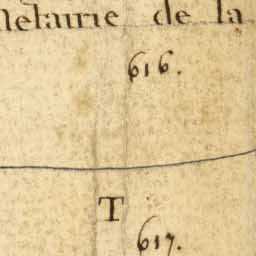 Metairie de la
616.
T
617.